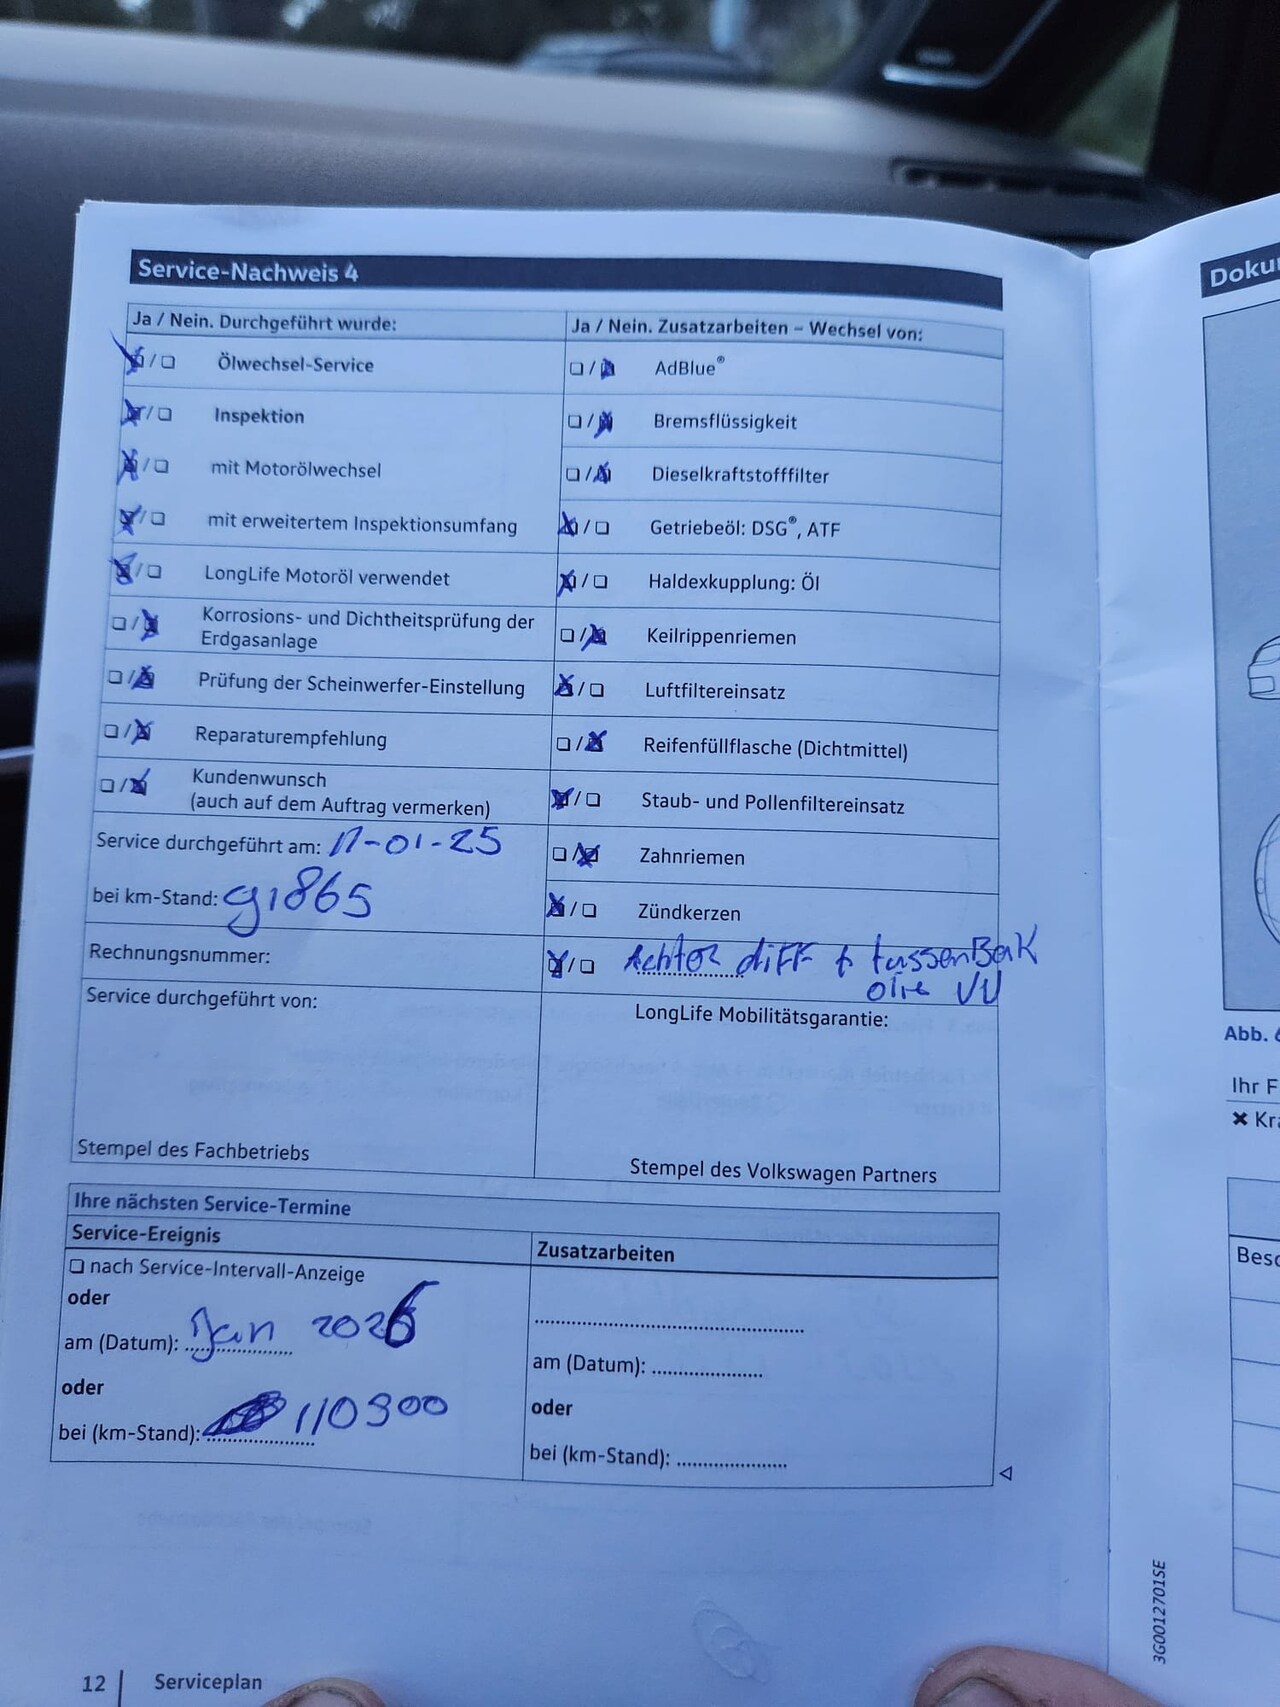 Service-Nachweis 4
Ja / Nein. Durchgeführt wurde:
Ölwechsel-Service
Inspektion
mit Motorölwechsel
mit erweitertem Inspektionsumfang
LongLife Motoröl verwendet
Korrosions- und Dichtheitsprüfung der
Erdgasanlage
Prüfung der Scheinwerfer-Einstellung
Reparaturempfehlung
Kundenwunsch
(auch auf dem Auftrag vermerken)
Service durchgeführt am: 17-01-25
bei km-Stand: 91865
Rechnungsnummer:
Service durchgeführt von:
Stempel des Fachbetriebs
Ja / Nein. Zusatzarbeiten – Wechsel von:
AdBlue®
Bremsflüssigkeit
Dieselkraftstofffilter
Getriebeöl: DSG®, ATF
Haldexkupplung: Öl
Keilrippenriemen
Luftfiltereinsatz
Reifenfüllflasche (Dichtmittel)
Staub- und Pollenfiltereinsatz
Zahnriemen
Zündkerzen
Achter diFF + tussenBak
olie VV
LongLife Mobilitätsgarantie:
Stempel des Volkswagen Partners
Ihre nächsten Service-Termine
Service-Ereignis
nach Service-Intervall-Anzeige
oder
am (Datum): Jan 2026
oder
bei (km-Stand): 110900
Zusatzarbeiten
am (Datum):
oder
bei (km-Stand):
12 Serviceplan
Doku
Abb. 
Ihr F
Kra
Besc
3G0012701SE